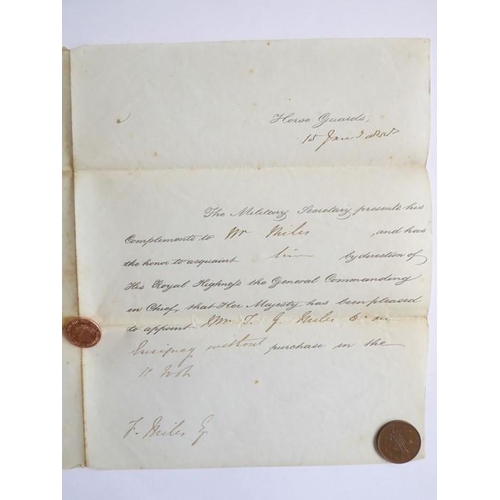 Horse Guards,
15 Jany
The Military Secretary presents his
Compliments to Mr Miles and has
the honor to acquaint him by direction of
His Royal Highness the General Commanding
in Chief, that Her Majesty has been pleased
to appoint Mr Miles to an
Ensigncy without purchase in the
11
F. Miles